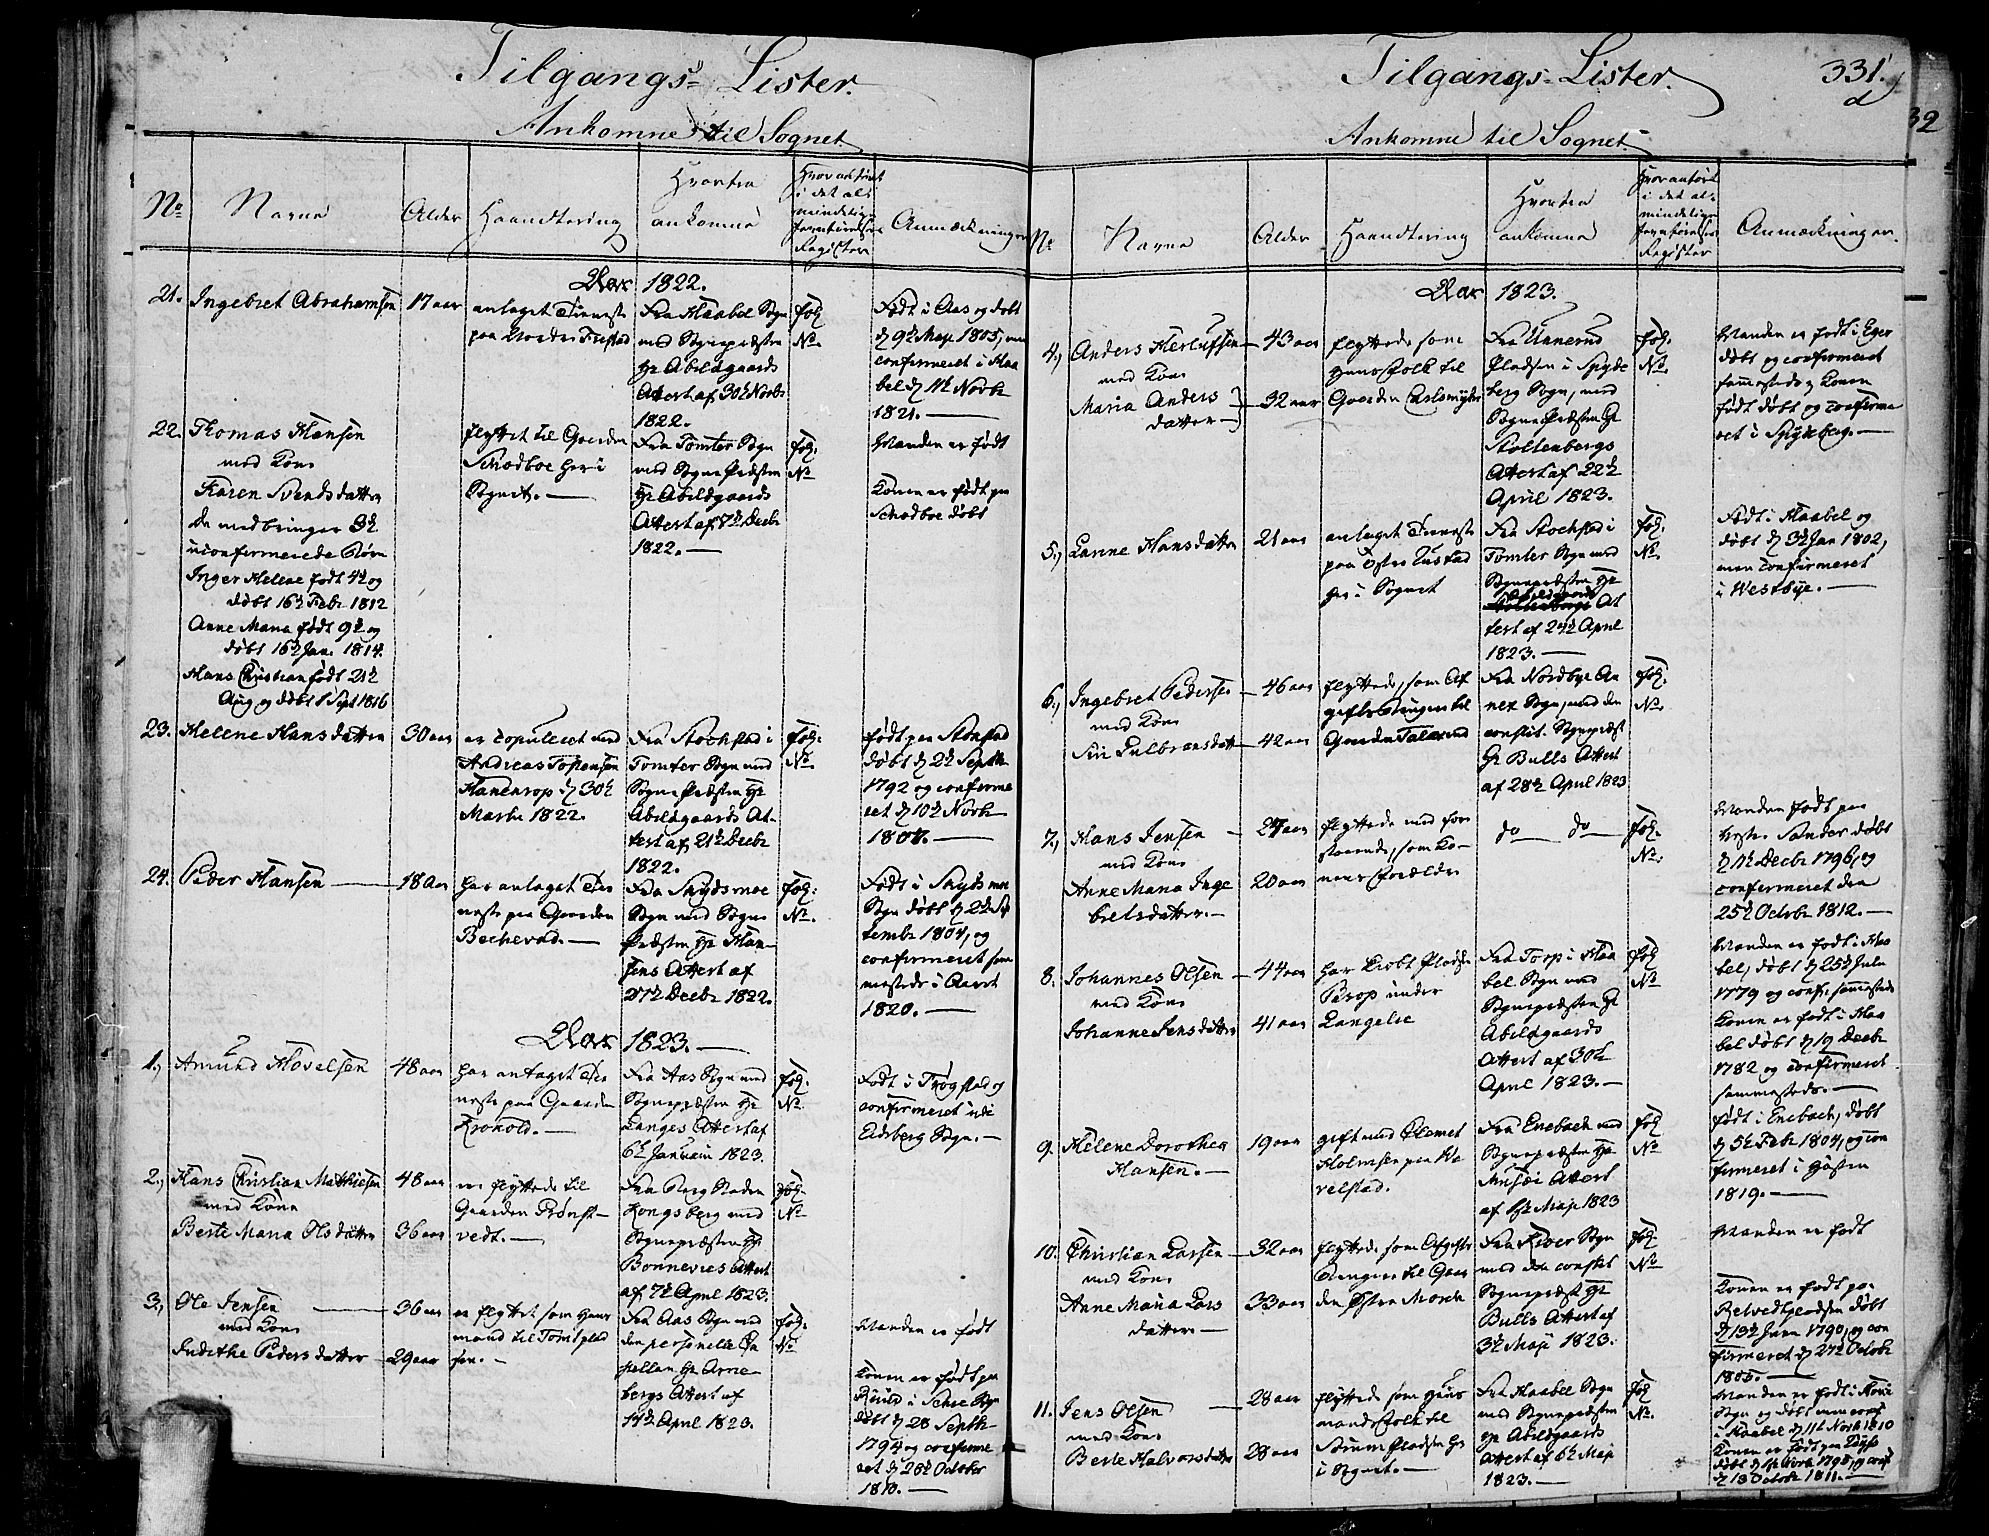 Tilgangs-Lister.
Ankomne til Sognet.
No
Navne
Alder
Haandtering
Hvorfra
ankomne
Hvor anført
i det al-
mindelige
Register
Anmærkninger
Aar 1822.
21. Ingebret Abrahamsen
17 aar
antaget Tieneste
paa Nordre
Fra Haabøl Sogn
med Sognepræsten
Hr Abildgaards
Attest af 30te Novbr
1822.
fol:
No.
Født i Aas og døbt
d 9de Maji 1805, men
confirmeret i Haa
bøl d 11te Novbr
1821.
22. Thomas Hansen
med Kone
Karen Svendsdatter
De medbringer 3de
uconfirmerede Børn
Inger Helene født 4de og
døbt 16de Febr 1812
Anne Maria født 9de og
døbt 16de Jan. 1814.
Hans Christian født 21de
Aug og døbt 1 Sept 1816
flyttet til Gaarden
Schodboe her i
Sognet.
Fra Tomter Sogn
med Sogne Præsten
Hr Abildgaards
Attest af 7de Decbr
1822.
fol:
No
Manden er født
Konen er født paa
Schodboe døbt
23. Helene Hansdatter
30 aar
er copuleret med
Andreas Torstensen
Hanentrop d 30te
Martii 1822.
Fra Stochstad i
Tomter Sogn med
Sogne Præsten Hr
Abildgaards At-
test af 21de Decbr
1822.
fol:
No.
født paa Stonstad
døbt d 2de Septbr
1792 og confirme
ret d 10de Novbr
1807.
24. Peder Hansen
18 Aar
har antaget Tie
neste paa Gaarden
Bechevad.
Fra Skydsmoe
Sogn med Sogne
Præsten Hr Han-
sens Attest af
27de Decbr 1822.
fol:
No.
Født i Skydsmoe
Sogn døbt d 2de Sep
tembr 1804, og
confirmeret sam
mesteds i Aaret
1820.
Aar 1823.
1., Amund Hovelsen
48 aar
har antaget Tie
neste paa Gaarden
Krohold.
Fra Aas Sogn med
Sognepræsten Hr
Langes Attest af
6te Januarii 1823.
fol:
No.
Født i Trøgstad og
confirmeret udi
Eidsberg Sogn.
2., Hans Christian Mathiesen
med Kone
Berte Maria Olsdatter
48 aar
36 aar
er flyttede til
Gaarden Rønst-
vedt.
Fra Berg Staden
Kongsberg med
Sognepræsten Hr
Bonnevies Attest
af 7de April 1823.
fol.
No
3., Ole Jensen
med Kone
Indethe Pedersdatter
36 aar
29 aar
er flyttet som Huus
mand til Tomtplad
sen.
Fra Aas Sogn med
den personelle Ca
pellan Hr Arne
bergs Attest af
14de April 1823.
fol:
No
Manden er født
Konen er født paa
Riiud i Schie Sogn
døbt d 28 Septbr
1794 og confirme
ret d 28de October
1810.
Tilgangs-Lister.
331.
d
32
Ankomne til Sognet.
No
Navne
Alder
Haandtering
Hvorfra
ankomne
Hvor anført
i det al-
mindelige
Register
Anmærkninger.
Aar 1823.
4., Anders Herlufsen
med Kone
Maria Anders
datter
43 aar
32 aar
flyttede som
Huusfolk til
Gaarden Carlsmyhr
Fra Unnerud
Pladsen i Spyde
berg Sogn, med
Sogne Præsten Hr
Stoltenbergs
Attest af 22de
April 1823.
fol:
No.
Manden er født i Eger
døbt og confirmeret
sammesteds, Konen
født døbt og confirme
ret i Spydeberg.
5., Lanne Hansdatter
21 aar
antaget Tieneste
paa Østre Tustad
her i Sognet
Fra Stochstad i
Tomter Sogn med
Sognepræsten Hr
Abildgaards
At
test af 24de April
1823.
fol:
No.
Født i Haabøl og
døbt d 3de Jan 1802,
men confirmeret
i Westbye.
6., Ingebret Pedersen
med Kone
Siri Gulbransdatter
46 aar
42 aar
flyttede, som Af
gifts Bruger til
Gaarden Talerud
Fra Nordbye An
nex Sogn, med den
constit. Sognepræst
Hr Bulls Attest
af 28de April 1823
fol.
No.
7., Hans Jensen
med Kone
Anne Maria Inge
bretsdatter.
27 aar
20 aar
flyttede med for
staaende, som Ko-
nens forældre
do do
fol:
No.
Manden født paa
Vestre Sander døbt
d 11te Decbr 1796, og
confirmeret den
25de Octobr 1812.
8. Johannes Olsen
med Kone
Johanne Jensdatter
44 aar
41 aar
har Kiøbt Pladsen
Perop under
Langelie
Fra Torp i Haa
bøl Sogn med
Sognepræsten Hr
Abildgaards
Attest af 30te
April 1823.
fol
No
Manden er født i Haa
bøl, døbt d 25de Julii
1779 og conf. sammesteds
Konen er født i Haa
bøl døbt d 19 Decbr
1782 og confirmeret
sammesteds.
9. Helene Dorothea
Hansen.
19 aar
gift med Clemet
Holmsen paa Ho
velstad.
Fra Enebach med
Sognepræsten Hr
Attest
af Maji 1823
fol
No
født i Enebach, døbt
d 5te Febr 1804, og con
firmeret i Høsten
1819.
10. Christian Larsen
med Kone
Anne Maria Lars
datter
32 aar
33 aar
flyttede som Afgifts
Brugere til Gaar
den Østre Morch
Fra Kroer Sogn
med den constit
Sognepræst Hr
Bulls Attest af
3de Maji 1823.
fol
No
Manden er født
Konen er født paa
Retvedt Pladsen døbt
d 13de Junii 1790, og con
firmeret d 27de Octobr
1805.
11. Jens Olsen
med Kone
Berte Halvorsdatter
28 aar
28 aar
flyttede som Huus
mandsfolk til
Pladsen her
i Sognet.
Fra Haabøl Sogn
med Sognepræsten
Hr Abildgaards
Attest af 6te Maji
1823.
fol
No.
Manden er født i
Sogn og døbt men conf
i Haabøl d 11te Novb 1810
Konen er født paa
døbt d Novb 1795, og conf
d 13 October 1811.